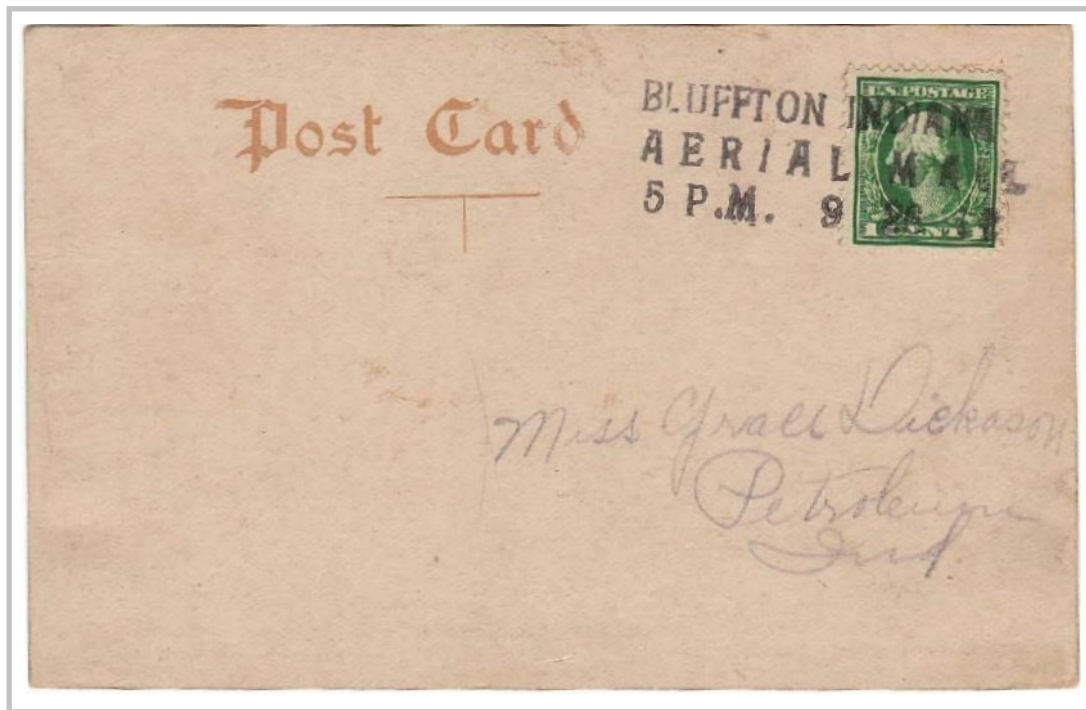 Post Card
BLUFFTON INDIANA
AERIAL MAIL
5 P.M. 9 26
U.S. POSTAGE
1 CENT 1
Miss Grace Dickason
Petroleum
Ind.